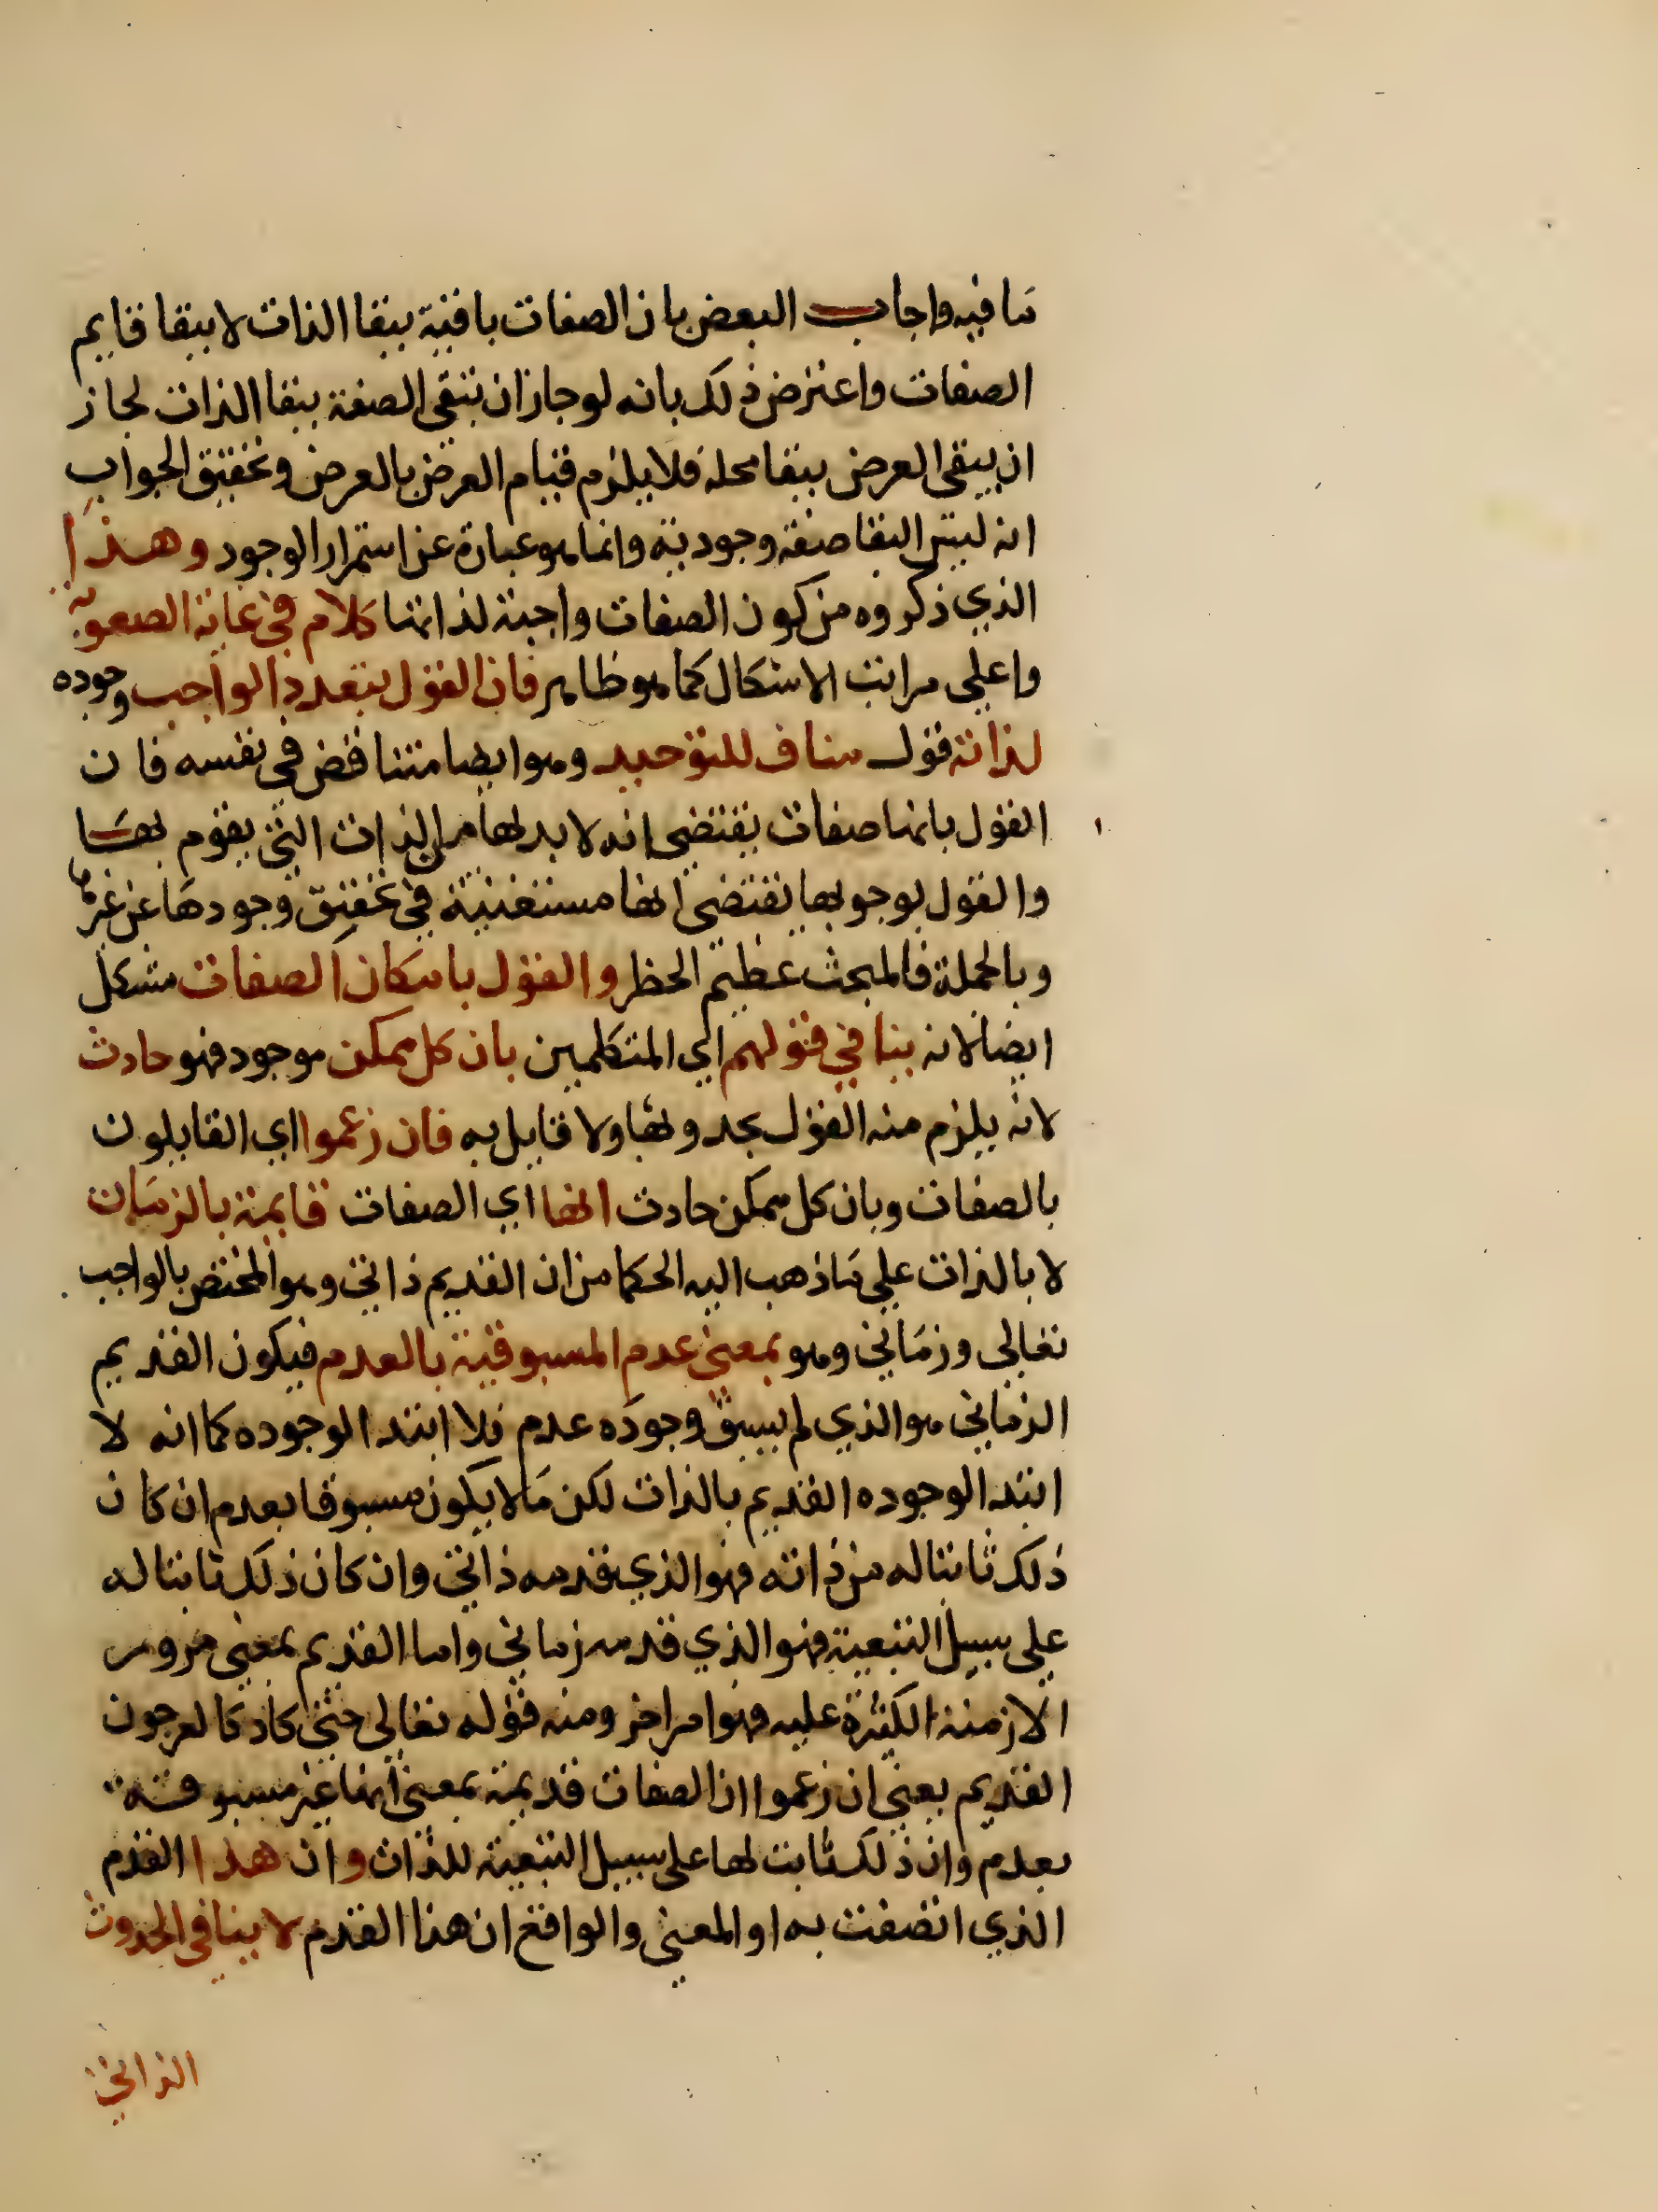 ما فيه واجاب البعض بان الصفات باقية ببقا الذات لا ببقا قايم
الصفات واعترض ذلك بانه لو جاز ان تبقى الصفة ببقا الذات لجاز
ان يبقى العرض ببقا محله فلا يلزم قيام العرض بالعرض وتحقيق الجواب
انه ليس البقا صفة وجودية وانما هو عبارة عن استمرار الوجود وهذا
الذي ذكروه من كون الصفات واجبة لذاتها كلام في غاية الصعوبة
واعلي مراتب الاشكال كما هو ظاهر فان القول بتعدد الواجب وجوده
لذاته قول مناف للتوحيد وهو ايضا متناقض في نفسه فان
القول بانها صفات يقتضي انه لا بد لها من الذات التي يقوم بها
والقول بوجوبها يقتضي انها مستغنية في تحقيق وجودها عن غيرها
وبالجملة فالمبحث عظيم الخطر والقول بامكان الصفات مشكل
ايضا لانه ينافي قولهم اي المتكلمين بان كل ممكن موجود فهو حادث
لانه يلزم منه القول بحدوثها ولا قايل به فان زعموا اي القايلون
بالصفات وبان كل ممكن حادث انها اي الصفات قايمة بالزمان
لا بالذات علي ما ذهب اليه الحكما من ان القديم ذاتي وهو المختص بالواجب
تعالي وزماني وهو بمعني عدم المسبوقية بالعدم فيكون القديم
الزماني هو الذي لم يسبق وجوده عدم فلا ابتدا لوجوده كما انه لا
ابتدا لوجوده القديم بالذات لكن ما لا يكون مسبوقا بعدم ان كان
ذلك ثابتا له من ذاته فهو الذي قدمه ذاتي وان كان ذلك ثابتا له
علي سبيل التبعية فهو الذي قدمه زماني واما القديم بمعني مرور
الازمنة الكثيرة عليه فهو امر اخر ومنه قوله تعالي حتي كاد كالعرجون
القديم يعني ان زعموا ان الصفات قديمة بمعني انها غير مسبوقة
بعدم وان ذلك ثابت لها علي سبيل التبعية للذات وان هذا القدم
الذي اتصفت به او المعني والواقع ان هذا القدم لا ينافي الحدوث
الذاتي